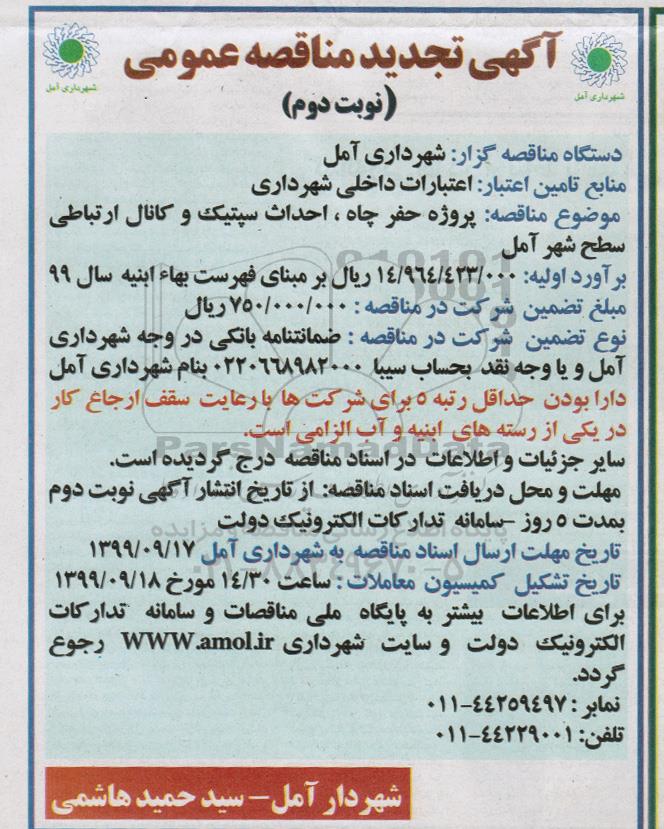 آگهی تجدید مناقصه عمومی
(نوبت دوم)
شهرداری آمل
شهرداری آمل
دستگاه مناقصه گزار: شهرداری آمل
منابع تامین اعتبار: اعتبارات داخلی شهرداری
موضوع مناقصه: پروژه حفر چاه ، احداث سپتیک و کانال ارتباطی
سطح شهر آمل
برآورد اولیه: ۱۴/۹۶۴/۴۲۳/۰۰۰ ریال بر مبنای فهرست بهاء ابنیه سال ۹۹
مبلغ تضمین شرکت در مناقصه : ۷۵۰/۰۰۰/۰۰۰ ریال
نوع تضمین شرکت در مناقصه : ضمانتنامه بانکی در وجه شهرداری
آمل و یا وجه نقد بحساب سیبا ۰۲۲۰۶۶۸۹۸۲۰۰۰ بنام شهرداری آمل
دارا بودن حداقل رتبه ۵ برای شرکت ها با رعایت سقف ارجاع کار
در یکی از رسته های ابنیه و آب الزامی است.
سایر جزئیات و اطلاعات در اسناد مناقصه درج گردیده است.
مهلت و محل دریافت اسناد مناقصه: از تاریخ انتشار آگهی نوبت دوم
بمدت ۵ روز -سامانه تدارکات الکترونیک دولت
تاریخ مهلت ارسال اسناد مناقصه به شهرداری آمل ۱۳۹۹/۰۹/۱۷
تاریخ تشکیل کمیسیون معاملات : ساعت ۱۴/۳۰ مورخ ۱۳۹۹/۰۹/۱۸
برای اطلاعات بیشتر به پایگاه ملی مناقصات و سامانه تدارکات
الکترونیک دولت و سایت شهرداری WWW.amol.ir رجوع
گردد.
نمابر : ۴۴۲۵۹۴۹۷-۰۱۱
تلفن: ۴۴۲۲۹۰۰۱-۰۱۱
شهردار آمل- سید حمید هاشمی
ParsNamadData